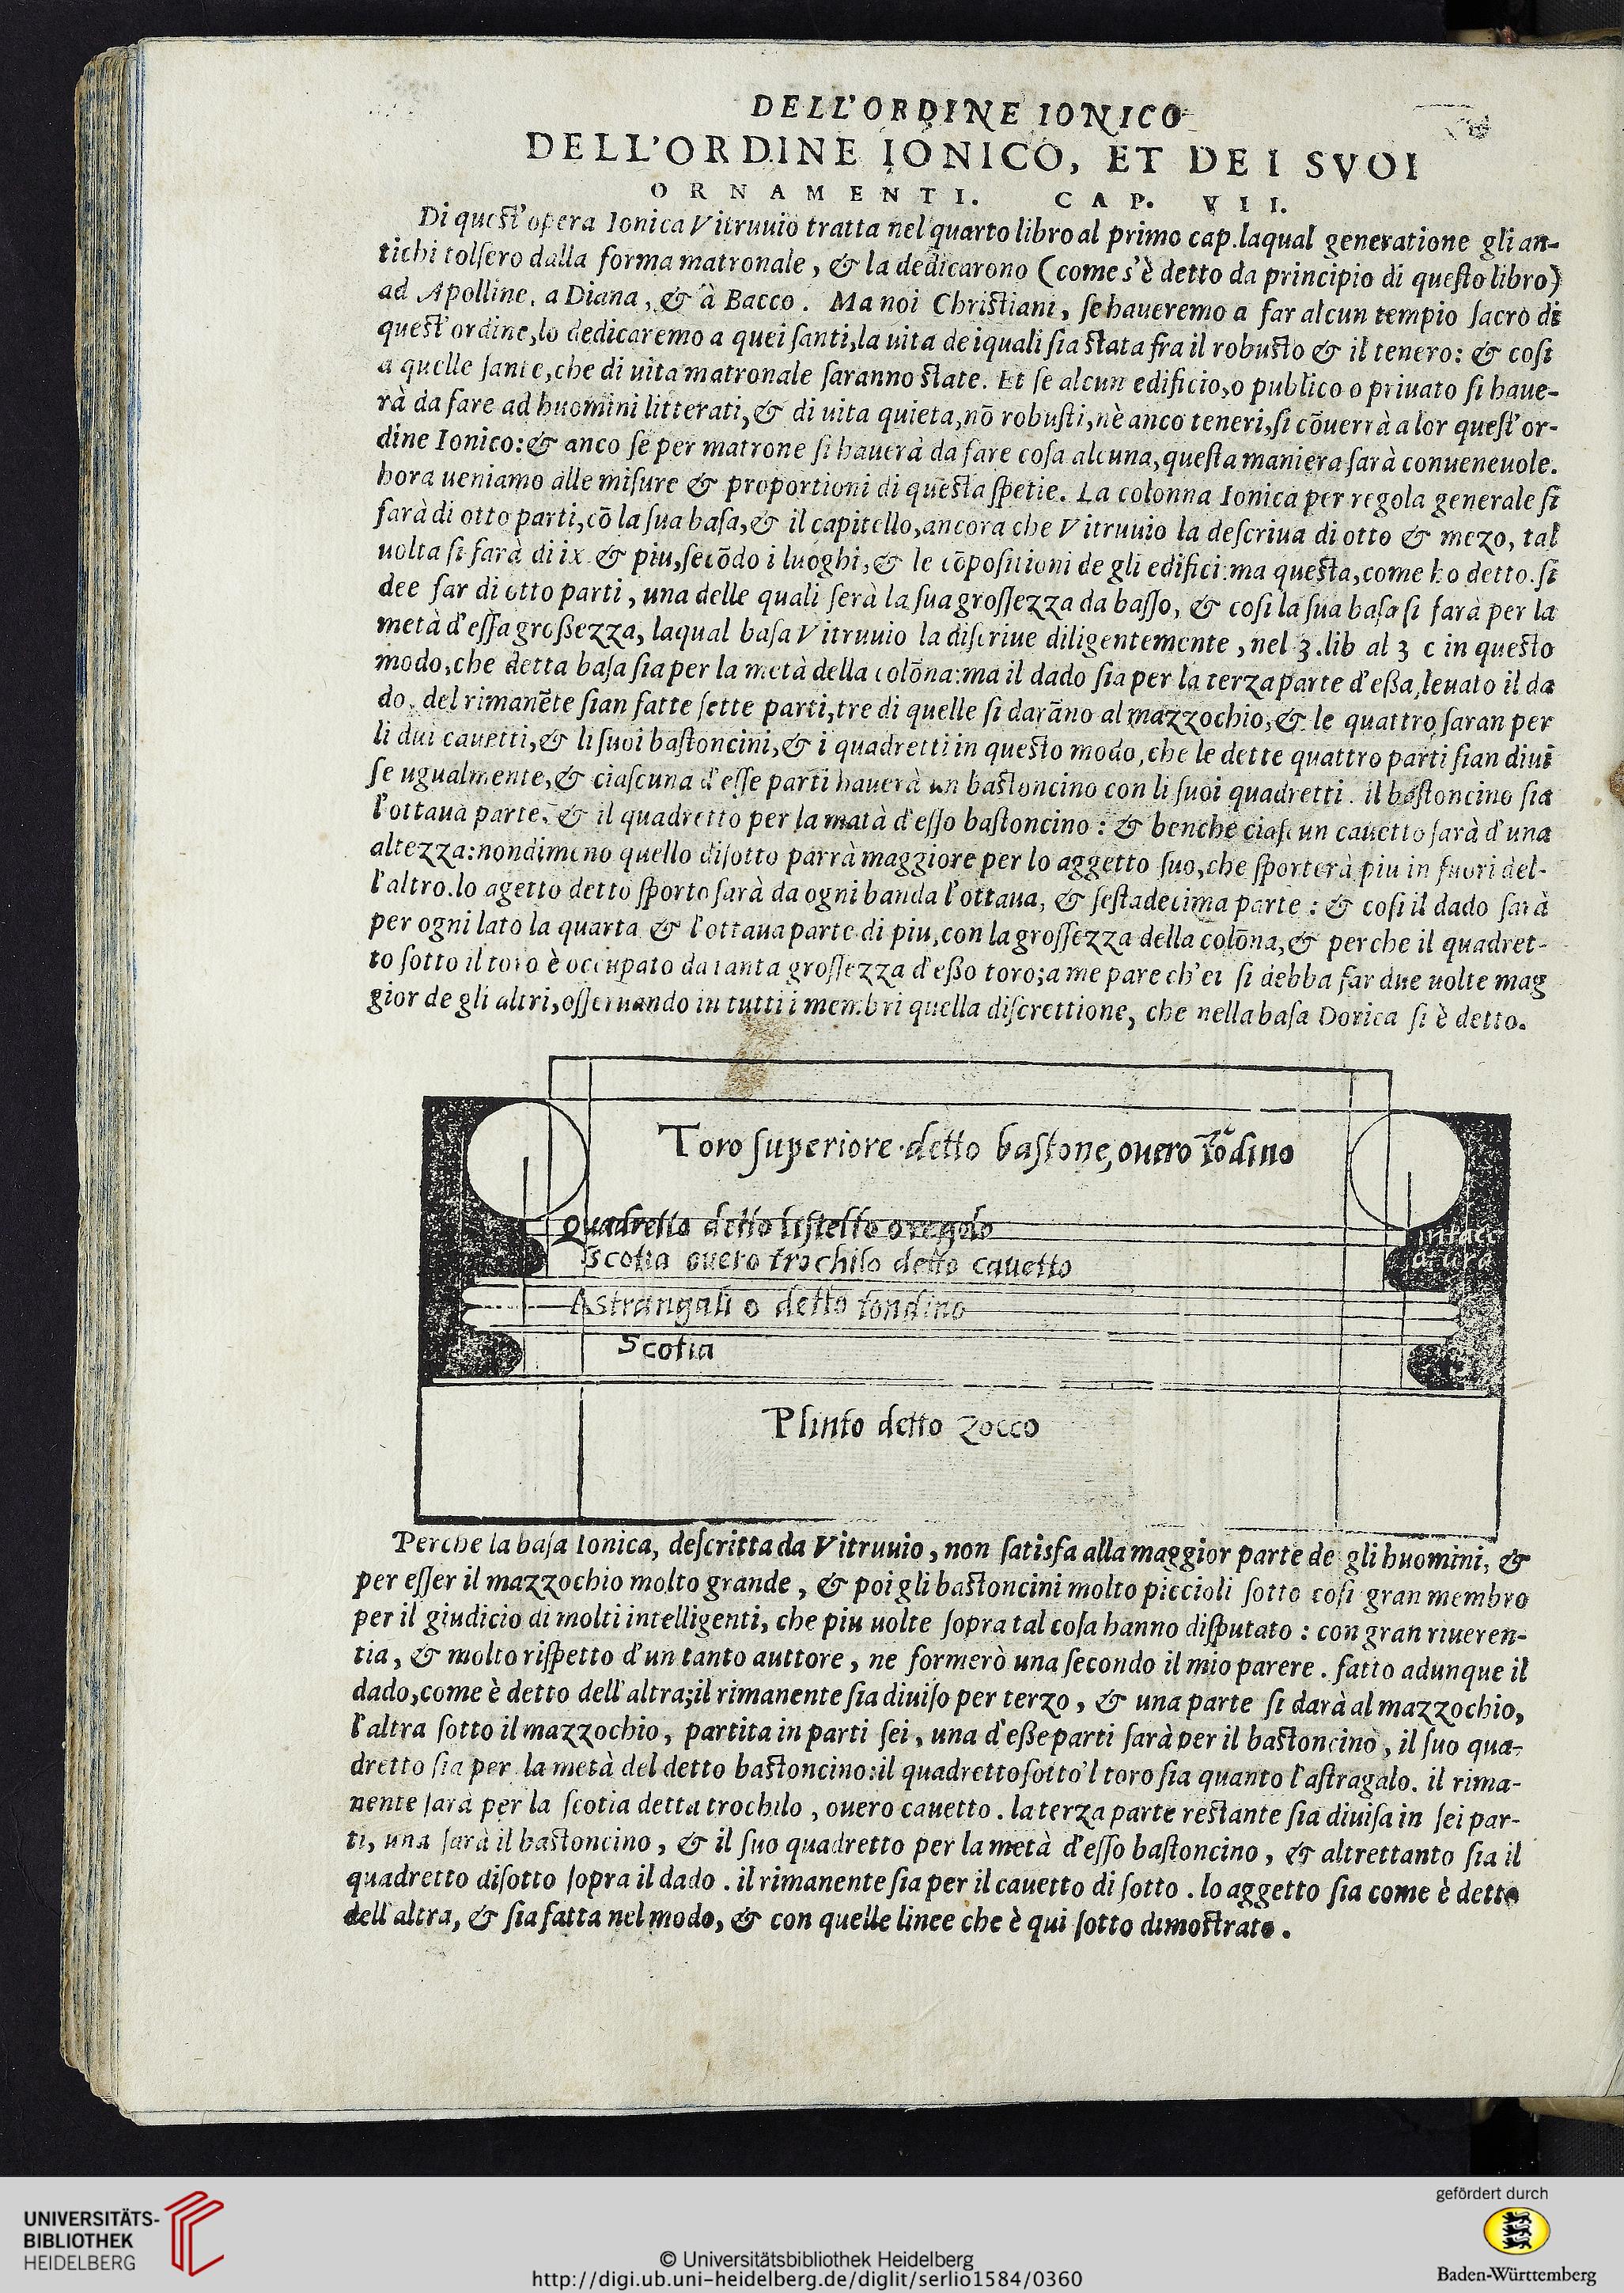 DELL'ORDINE IONICO
DELL'ORDINE IONICO, ET DE I SVOI
ORNAMENTI. CAP. VII.
Di quest'opera Ionica Vitruuio tratta nel quarto libro al primo cap. laqual generatione gli an-
tichi tolsero dalla forma matronale, & la dedicarono (come s'è detto da principio di questo libro)
ad Apolline, a Diana, & à Bacco. Ma noi Christiani, se haueremo a far alcun tempio sacro di
quest'ordine, lo dedicaremo a quei santi, la uita de iquali sia stata fra il robusto & il tenero: & cosi
a quelle sante, che di uita matronale saranno state. Et se alcun edificio, o publico o priuato si haue-
rà da fare ad huomini litterati, & di uita quieta, nō robusti, nè anco teneri, si cōuerrà a lor quest'or-
dine Ionico: & anco se per matrone si hauerà da fare cosa alcuna, questa maniera sarà conueneuole.
hora ueniamo alle misure & proportioni di questa spetie. La colonna Ionica per regola generale si
farà di otto parti, cō la sua basa, & il capitello, ancora che Vitruuio la descriua di otto & mezo, tal
uolta si farà di ix. & piu, secōdo i luoghi, & le cōpositioni de gli edifici: ma questa, come ho detto. si
dee far di otto parti, una delle quali serà la sua grossezza da basso, & cosi la sua basa si farà per la
metà d'essa großezza, laqual basa Vitruuio la discriue diligentemente, nel 3. lib al 3 c in questo
modo, che detta basa sia per la metà della colōna: ma il dado sia per la terza parte d'eßa, leuato il da
do, del rimanēte sian fatte sette parti, tre di quelle si darāno al mazzochio, & le quattro saran per
li dui cauetti, & li suoi bastoncini, & i quadretti in questo modo, che le dette quattro parti sian diui
se ugualmente, & ciascuna d'esse parti hauerà un bastoncino con li suoi quadretti. il bastoncino sia
l'ottaua parte, & il quadretto per la matà d'esso bastoncino: & benche ciascun cauetto sarà d'una
altezza: nondimeno quello disotto parrà maggiore per lo aggetto suo, che sporterà piu in fuori del-
l'altro. lo agetto detto sporto sarà da ogni banda l'ottaua, & sestadecima parte: & cosi il dado sarà
per ogni lato la quarta & l'ottaua parte di piu, con la grossezza della colōna, & perche il quadret-
to sotto il toro è occupato da tanta grossezza d'eßo toro; a me pare ch'ei si debba far due uolte mag
gior de gli altri, osseruando in tutti i membri quella discrettione, che nella basa Dorica si è detto.
Toro superiore detto bastone, ouero tōdino
Quadretto detto listello o regolo
Scotia ouero trochilo detto cauetto
Astrangali o detto tondino
Scotia
Plinto detto zocco
Perche la basa Ionica, descritta da Vitruuio, non satisfa alla maggior parte de gli huomini, &
per esser il mazzochio molto grande, & poi gli bastoncini molto piccioli sotto cosi gran membro
per il giudicio di molti intelligenti, che piu uolte sopra tal cosa hanno disputato: con gran riueren-
tia, & molto rispetto d'un tanto auttore, ne formerò una secondo il mio parere. fatto adunque il
dado, come è detto dell'altra; il rimanente sia diuiso per terzo, & una parte si darà al mazzochio,
l'altra sotto il mazzochio, partita in parti sei, una d'eße parti sarà per il bastoncino, il suo qua-
dretto sia per la metà del detto bastoncino: il quadretto sotto'l toro sia quanto l'astragalo. il rima-
nente sarà per la scotia detta trochilo, ouero cauetto. la terza parte restante sia diuisa in sei par-
ti, una sarà il bastoncino, & il suo quadretto per la metà d'esso bastoncino, & altrettanto sia il
quadretto disotto sopra il dado. il rimanente sia per il cauetto di sotto. lo aggetto sia come è detto
dell'altra, & sia fatta nel modo, & con quelle linee che è qui sotto dimostrato.
UNIVERSITÄTS-
BIBLIOTHEK
HEIDELBERG
© Universitätsbibliothek Heidelberg
http://digi.ub.uni-heidelberg.de/diglit/serlio1584/0360
gefördert durch
Baden-Württemberg